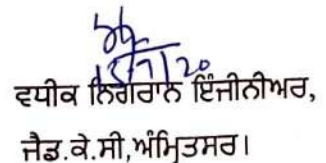 15/7/20
ਵਧੀਕ ਨਿਗਰਾਨ ਇੰਜੀਨੀਅਰ,
ਜੈਡ.ਕੇ.ਸੀ,ਅੰਮ੍ਰਿਤਸਰ।